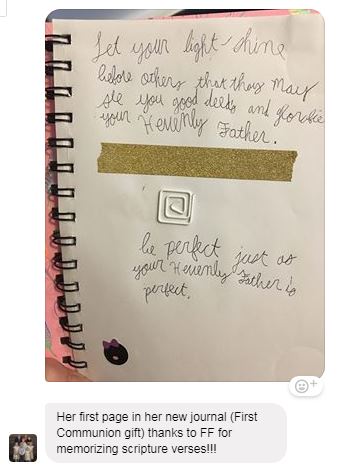 Let your light shine
before others that they may
see you good deeds and glorifie
your Hevenly Father.
be perfect just as
your Hevenly Father is
perfect.
Her first page in her new journal (First
Communion gift) thanks to FF for
memorizing scripture verses!!!